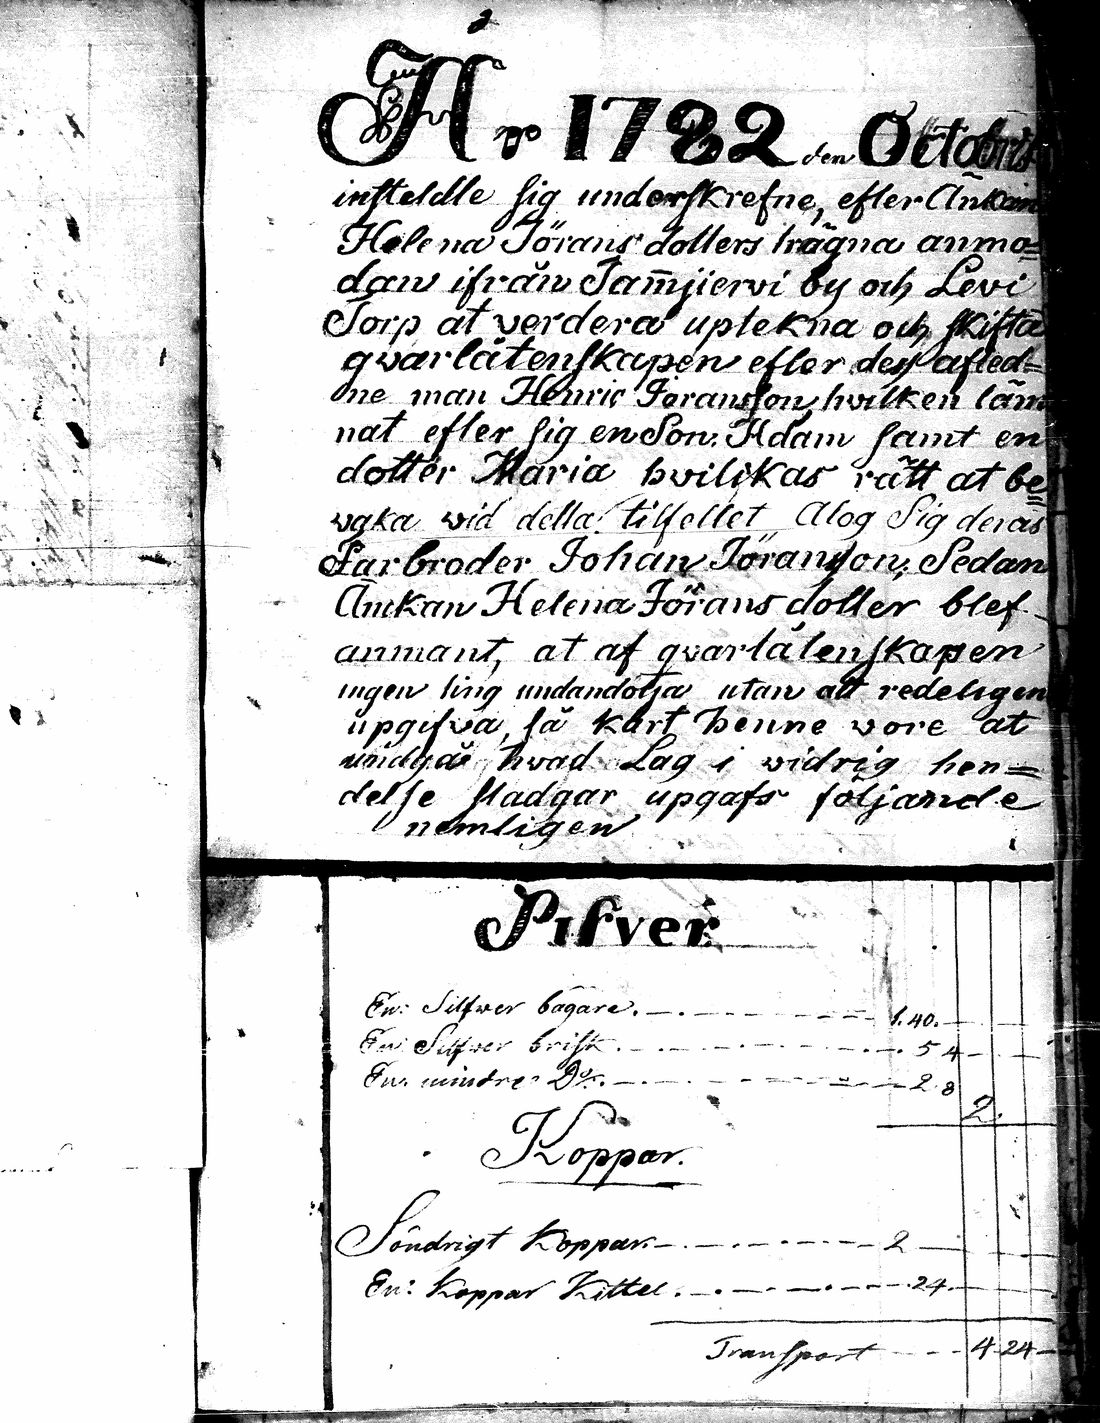 2
A:no 1782 den Octobris
insteldte sig underskrefne, efter Änkan
Helena Jörans dotters trägna anmo=
dan ifrån Jam̄jiervi by och Levi
Torp at verdera uptekna och skifta
qvarlåtenskapen efter dess afled=
ne man Henric Joransson, hvilken läm
nat efter sig en Son: Adam samt en
dotter Maria hvilikas rätt at be=
vaka wid detta tilfellet Atog Sig deras
Farbroder Johan Jöransson; Sedan
Änkan Helena Jörans dotter blef
anmant, at af qvarlåtenskapen
ingen ting undandölja utan alt redeligen
upgifva, så kärt henne vore at
undgå hvad Lag i vidrig hen=
delse stadgar upgafs följande
nemligen
Silfver
En: Silfwer bagare. 1.40.
En: Silfwer brisk. 5 4
En: mindre Do. 2 8
2.
Koppar.
Söndrigt Koppar. 2
En: Koppar Kittel. 24.
Transport 4 24